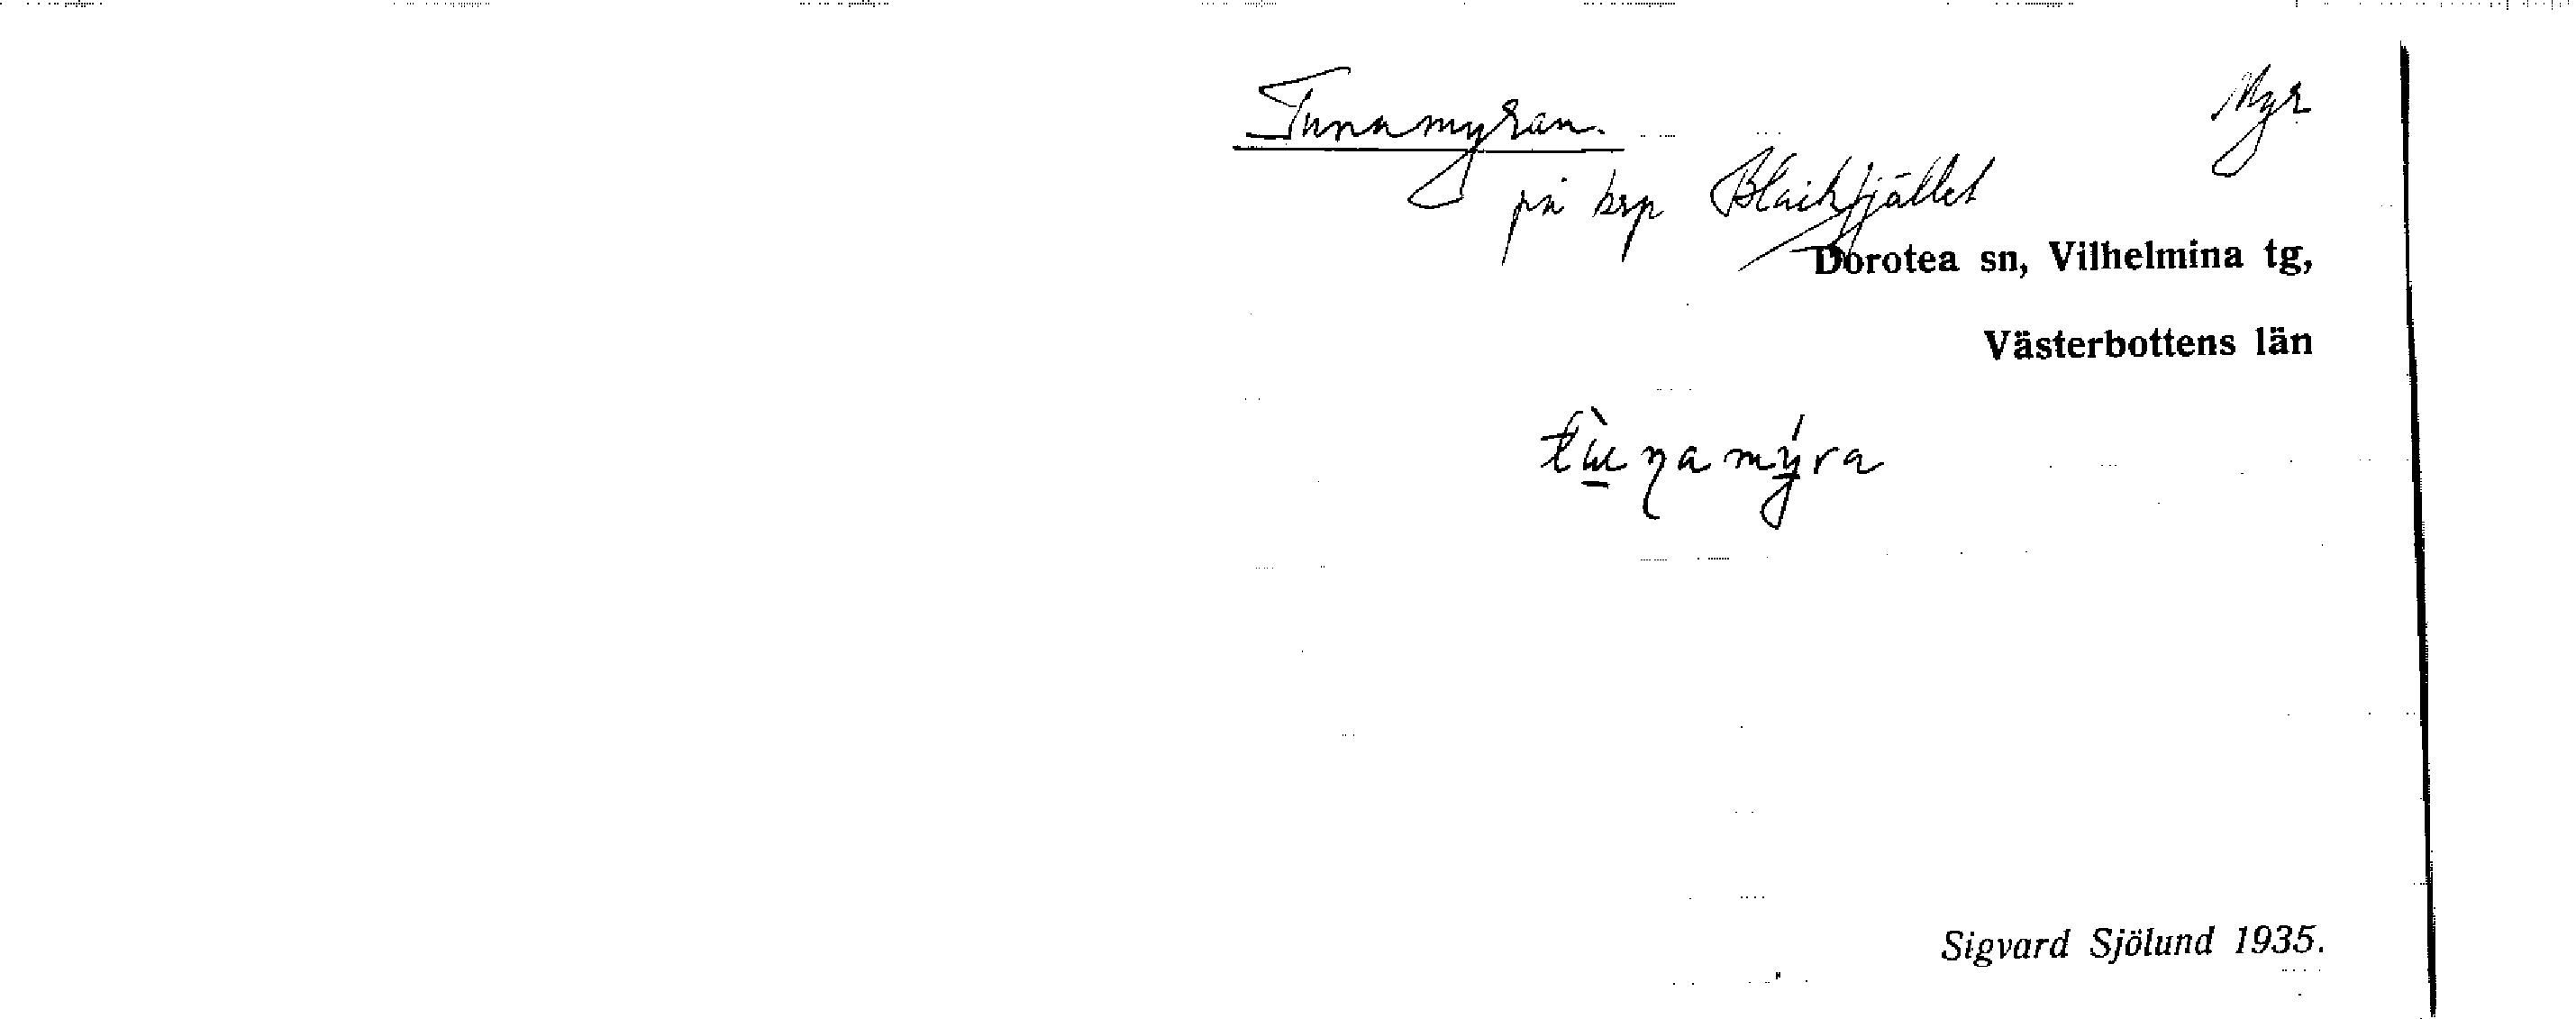 Tunamyran. Myr
på krp Blaikfjället
Dorotea sn, Vilhelmina tg,
Västerbottens län
Sigvard Sjölund 1935.